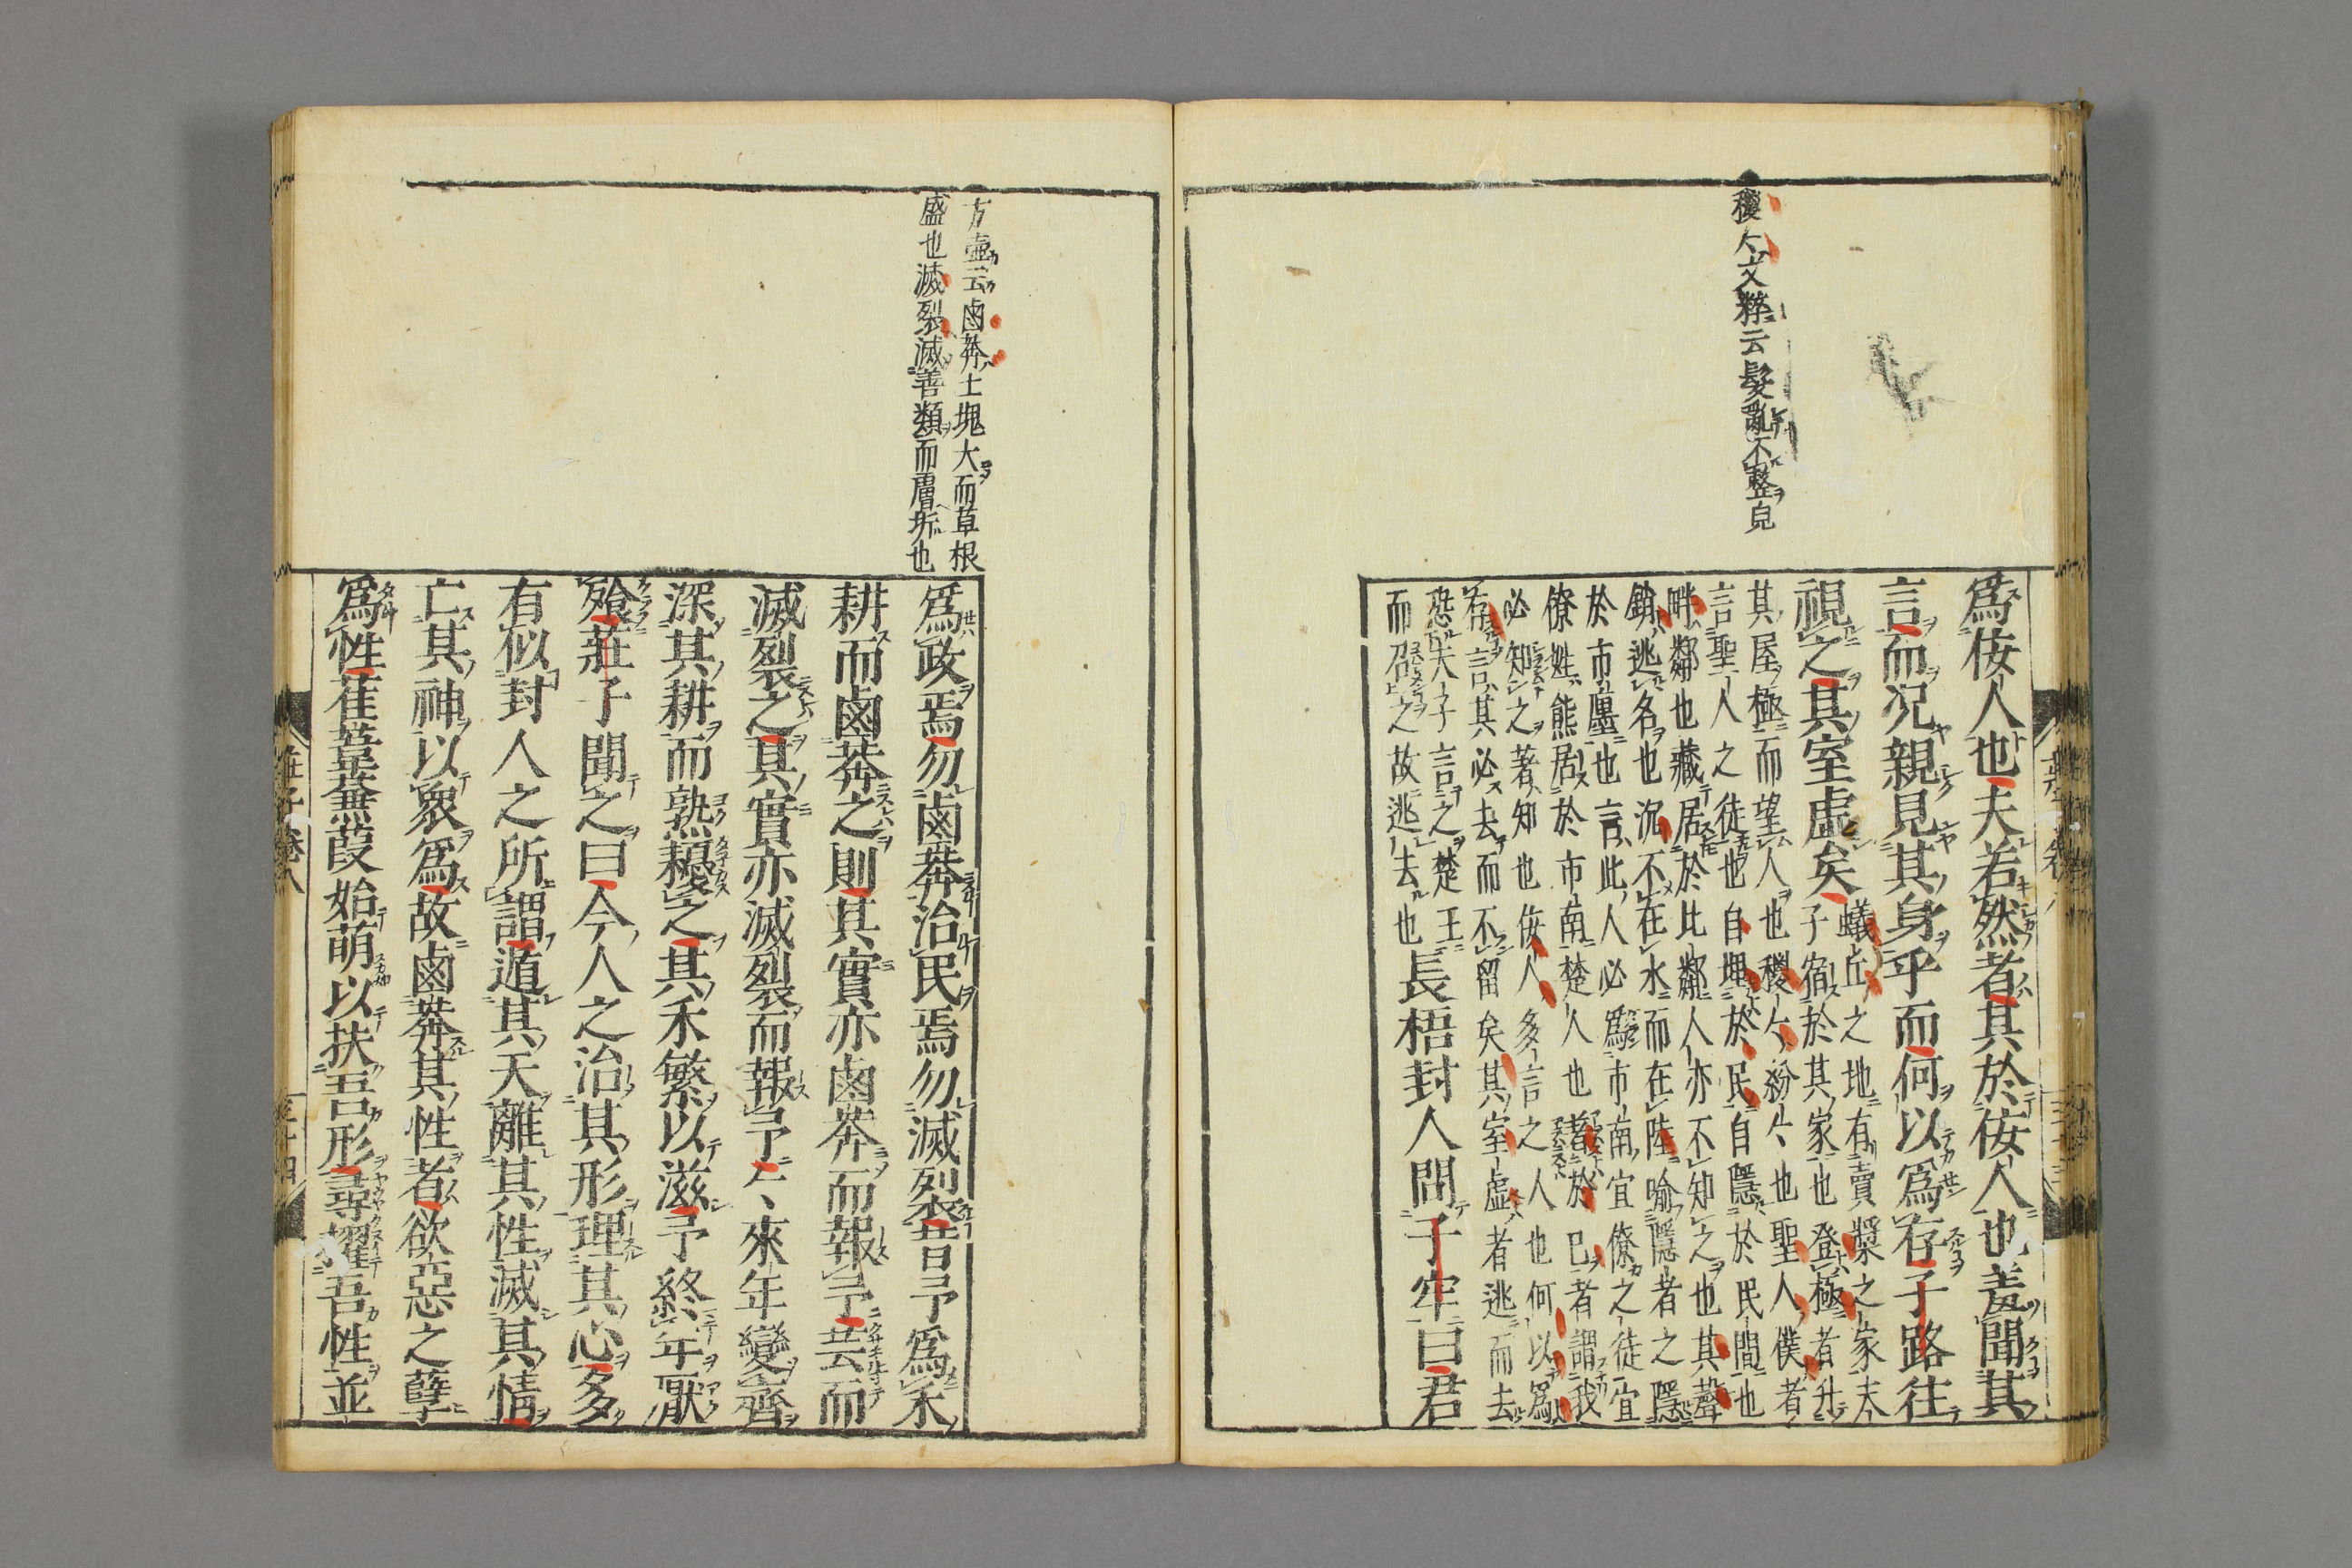 稯〻文粹云髮亂不整皃
爲佞人也夫若然者其於佞人也羞聞其
言而况親見其身乎而何以爲存子路往
視之其室虛矣
蟻丘之地有賣漿之家夫
子宿於其家也登極者升
其屋極而望人也稯〻紛〻也聖人僕者
言聖人之徒也自埋於民自隱於民間也
畔鄰也藏居於比鄰人亦不知之也其聲
銷逃名也沉不在水而在陸喻隱者之隱
於市廛也言此人必爲市南宜僚之徒宜
僚姓熊居於市南楚人也著於已者謂我
必知之著知也佞人多言之人也何以爲
存言其必去而不留矣其室虛者逃而去
恐夫子言之楚王
而召之故逃去也
長梧封人問子牢曰君
方壺云鹵莽土塊大而草根
盛也滅裂滅善類而膚坼也
爲政焉勿鹵莽治民焉勿滅裂昔予爲禾
耕而鹵莽之則其實亦鹵莽而報予芸而
滅裂之其實亦滅裂而報予〻來年變齊
深其耕而熟耰之其禾繁以滋予終年厭
飱莊子聞之曰今人之治其形理其心多
有似封人之所謂遁其天離其性滅其情
亡其神以衆爲故鹵莽其性者欲惡之孽
爲性萑葦蒹葭始萌以扶吾形尋擢吾性並
莊子卷八